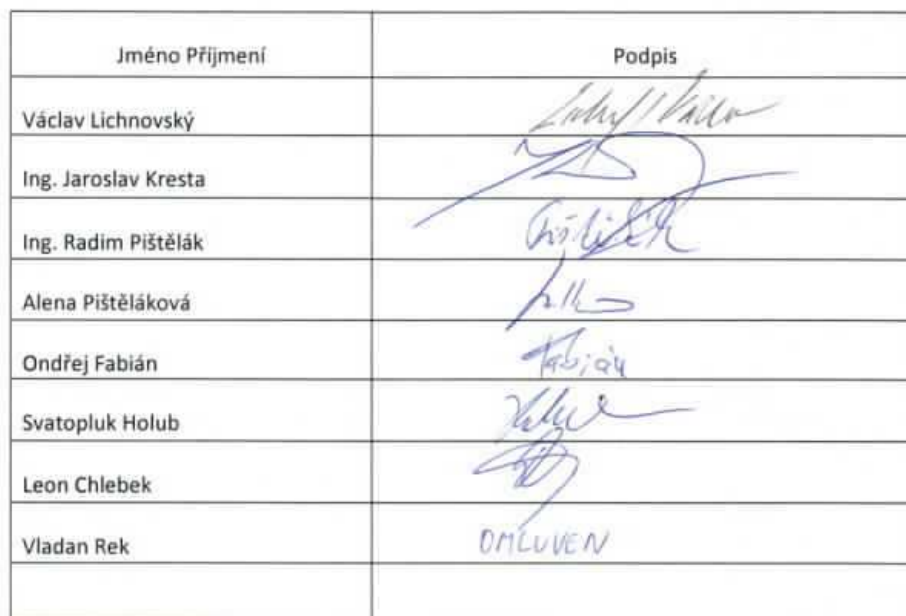 Jméno Příjmení Podpis
Václav Lichnovský
Ing. Jaroslav Kresta
Ing. Radim Pištělák
Alena Pištěláková
Ondřej Fabián Fabián
Svatopluk Holub
Leon Chlebek
Vladan Rek OMLUVEN